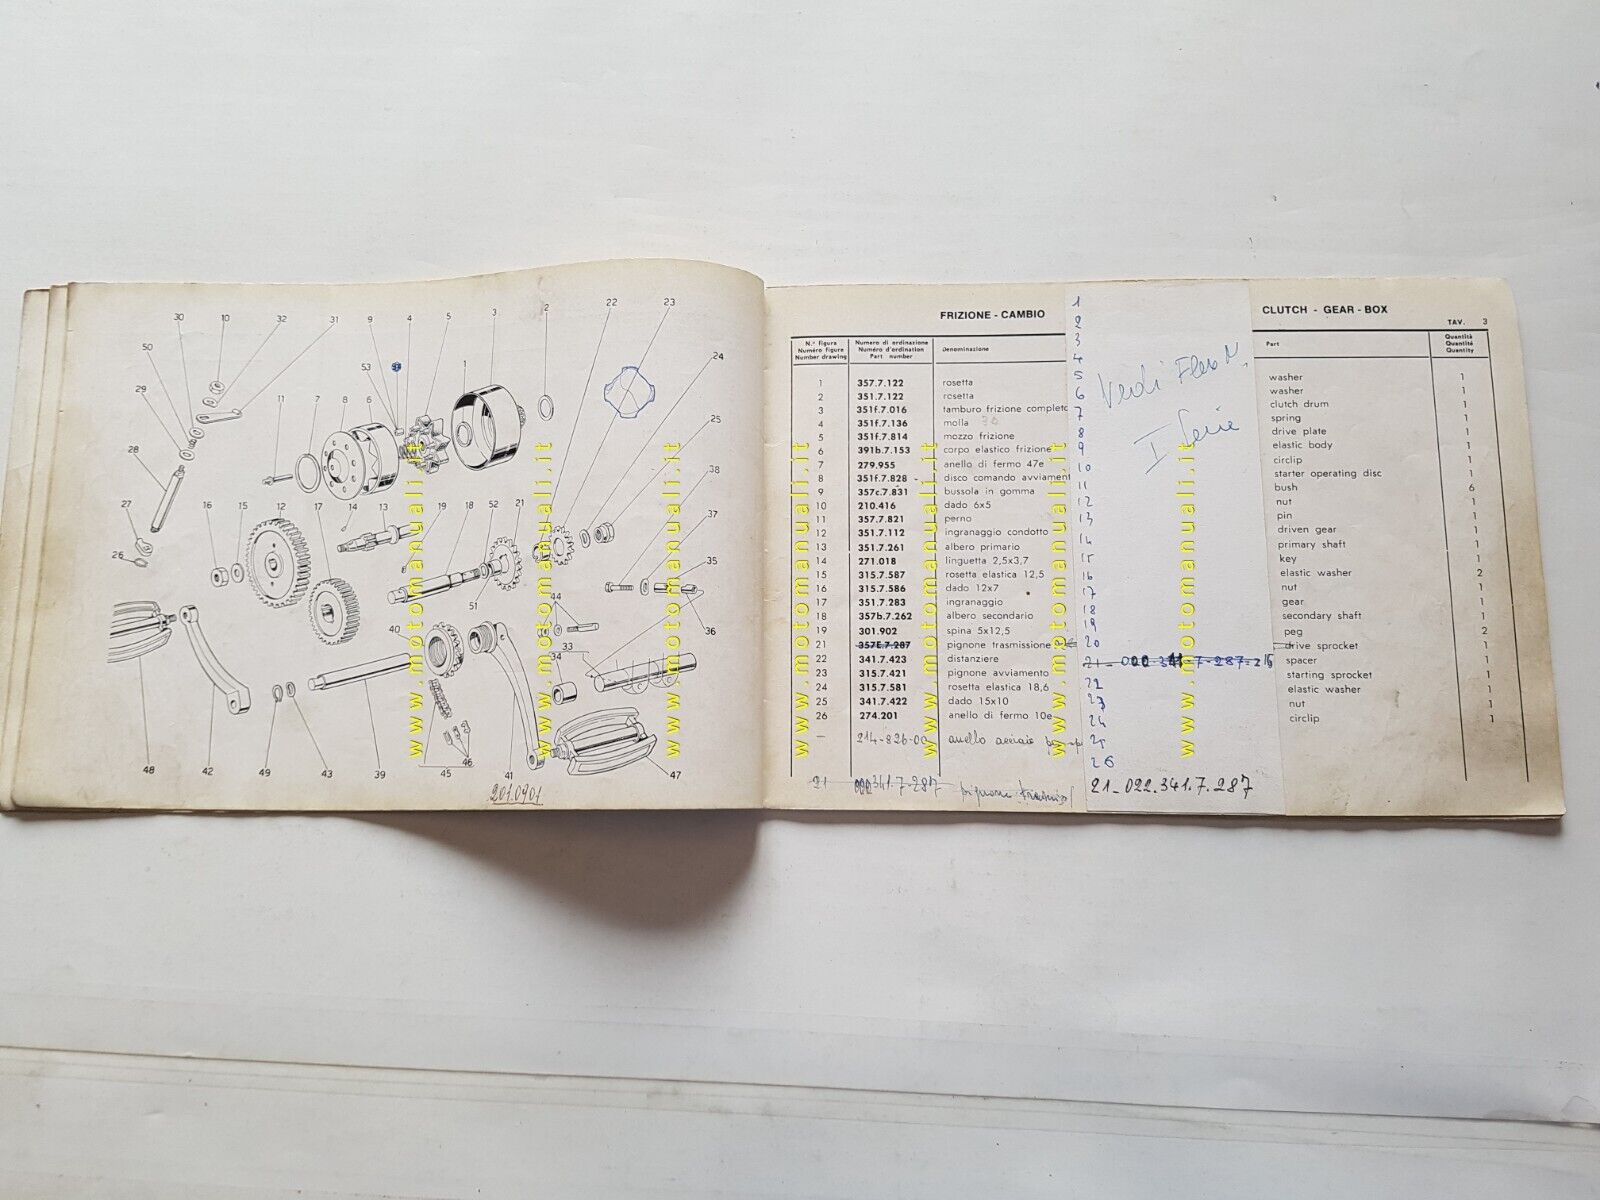 30 10 32 31 9 4 5 3 2 22 23
50 53 24
29 1
29 11 7 8 6 25
28 38
27 16 15 12 17 14 13 19 18 52 21 37
26 35
51 44
40 36
33
34
48 42 49 43 39 45 46 41 47
201.0901
FRIZIONE - CAMBIO
CLUTCH - GEAR - BOX
TAV. 3
N.° figura Numero di ordinazione Denominazione Part Quantità
Numéro figure Numéro d'ordination Quantité
Number drawing Part number Quantity
1 357.7.122 rosetta washer 1
2 351.7.122 rosetta washer 1
3 351f.7.016 tamburo frizione completo clutch drum 1
4 351f.7.136 molla spring 1
5 351f.7.814 mozzo frizione drive plate 1
6 391b.7.153 corpo elastico frizione elastic body 1
7 279.955 anello di fermo 47e circlip 1
8 351f.7.828 disco comando avviament starter operating disc 1
9 357c.7.831 bussola in gomma bush 6
10 210.416 dado 6x5 nut 1
11 357.7.821 perno pin 1
12 351.7.112 ingranaggio condotto driven gear 1
13 351.7.261 albero primario primary shaft 1
14 271.018 linguetta 2,5x3,7 key 1
15 315.7.587 rosetta elastica 12,5 elastic washer 2
16 315.7.586 dado 12x7 nut 1
17 351.7.283 ingranaggio gear 1
18 357b.7.262 albero secondario secondary shaft 1
19 301.902 spina 5x12,5 peg 2
21 357E.7.287 pignone trasmissione drive sprocket 1
22 341.7.423 distanziere spacer 1
23 315.7.421 pignone avviamento starting sprocket 1
24 315.7.581 rosetta elastica 18,6 elastic washer 1
25 341.7.422 dado 15x10 nut 1
26 274.201 anello di fermo 10e circlip 1
– 214-826-00 anello acciaio
21 000 341.7.287 pignone
1
2
3
4
5
6
7
8
9
10
11
12
13
14
15
16
17
18
19
20
21 - 000-341-7-287-2
22
23
24
25
26
I Serie
21-022.341.7.287
www.motomanuali.it
www.motomanuali.it
www.motomanuali.it
www.motomanuali.it
www.motomanuali.it
www.motomanuali.it